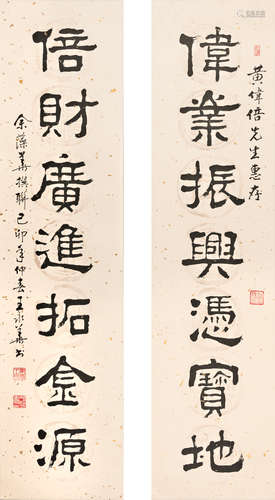 黃偉倍先生惠存
偉業振興憑寶地
倍財廣進拓金源
余藻華撰聯己卯年仲春王永華書